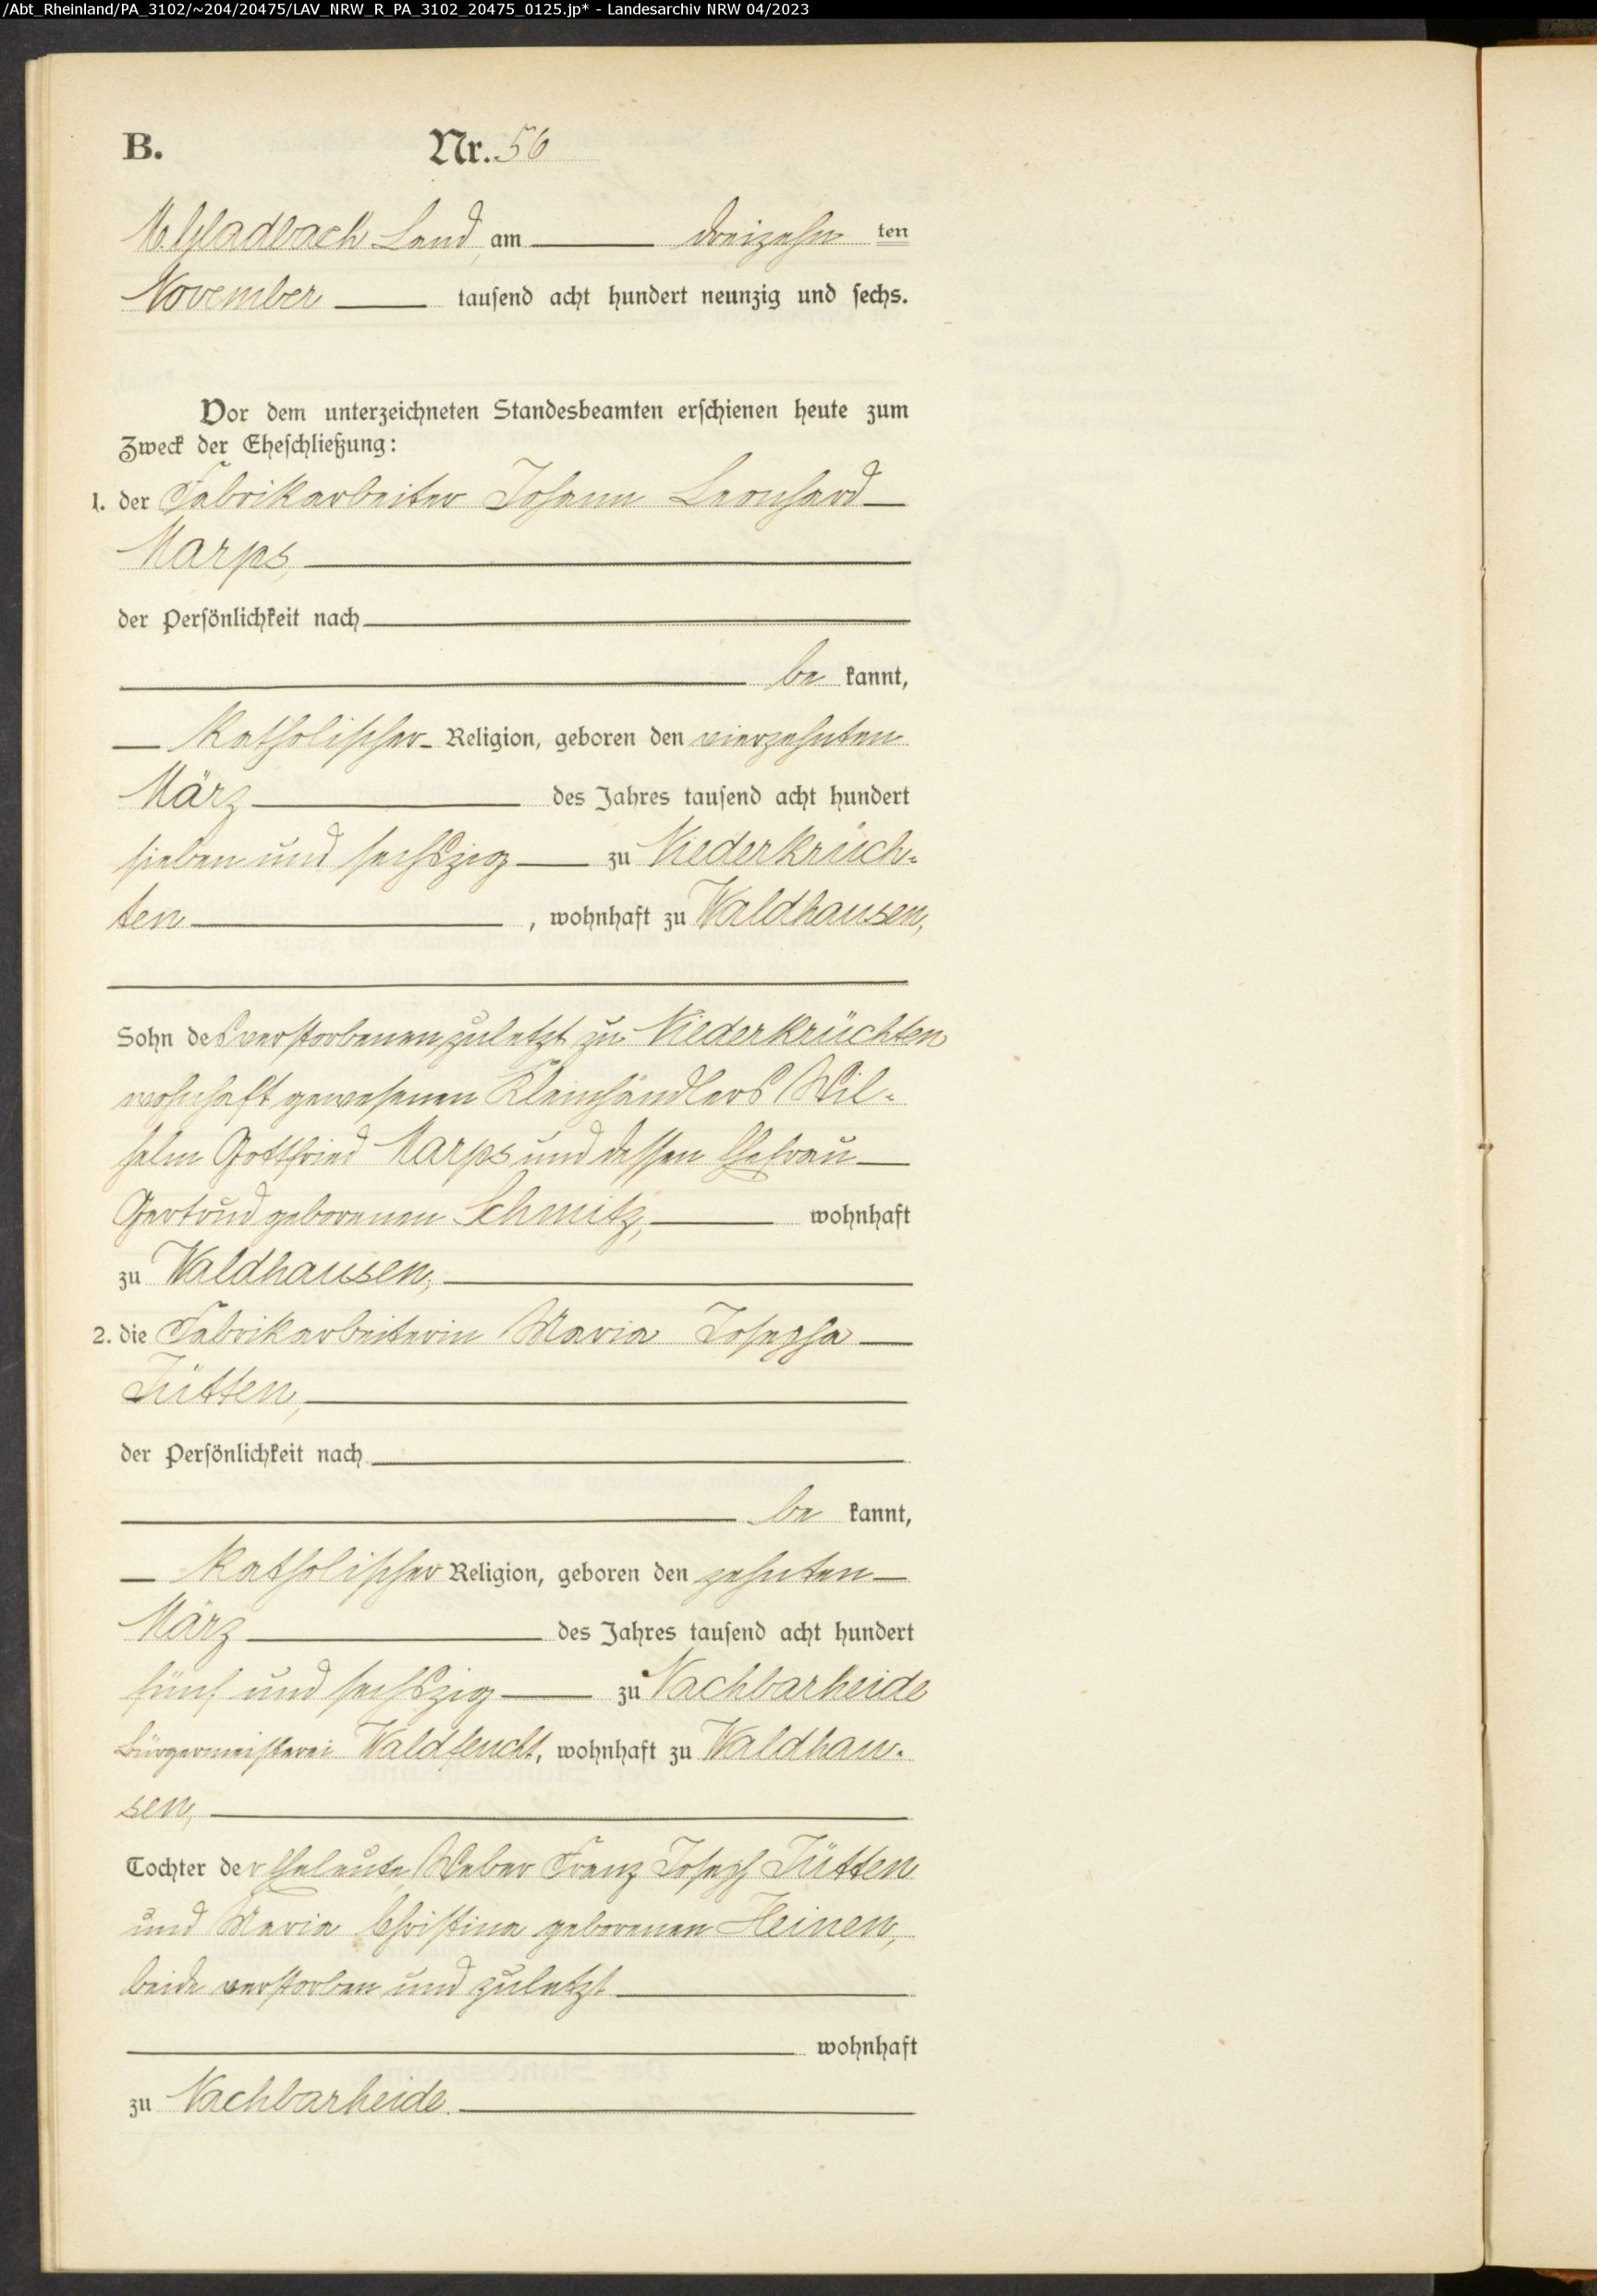 /Abt_Rheinland/PA_3102/~204/20475/LAV_NRW_R_PA_3102_20475_0125.jp* - Landesarchiv NRW 04/2023
B. Nr. 56
M.Gladbach Land, am dreizehn ten
November tausend acht hundert neunzig und sechs.
Vor dem unterzeichneten Standesbeamten erschienen heute zum
Zweck der Eheschließung:
1. der Fabrikarbeiter Johann Leonhard
Marps,
der Persönlichkeit nach
be kannt,
katholischer Religion, geboren den vierzehnten
März des Jahres tausend acht hundert
sieben und sechszig zu Niederkrüch-
ten , wohnhaft zu Waldhausen,
Sohn des verstorbenen, zuletzt zu Niederkrüchten
wohnhaft gewesenen Kleinhändlers Wil-
helm Gottfried Marps und dessen Ehefrau
Gertrud geborenen Schmitz, wohnhaft
zu Waldhausen,
2. die Fabrikarbeiterin Maria Josepha
Jütten,
der Persönlichkeit nach
be kannt,
katholischer Religion, geboren den zehnten
März des Jahres tausend acht hundert
fünf und sechszig zu Nachbarheide
Bürgermeisterei Waldfeucht, wohnhaft zu Waldhau-
sen,
Tochter der Eheleute Weber Franz Joseph Jütten
und Maria Christina geborenen Heinen,
beide verstorben und zuletzt
wohnhaft
zu Nachbarheide.